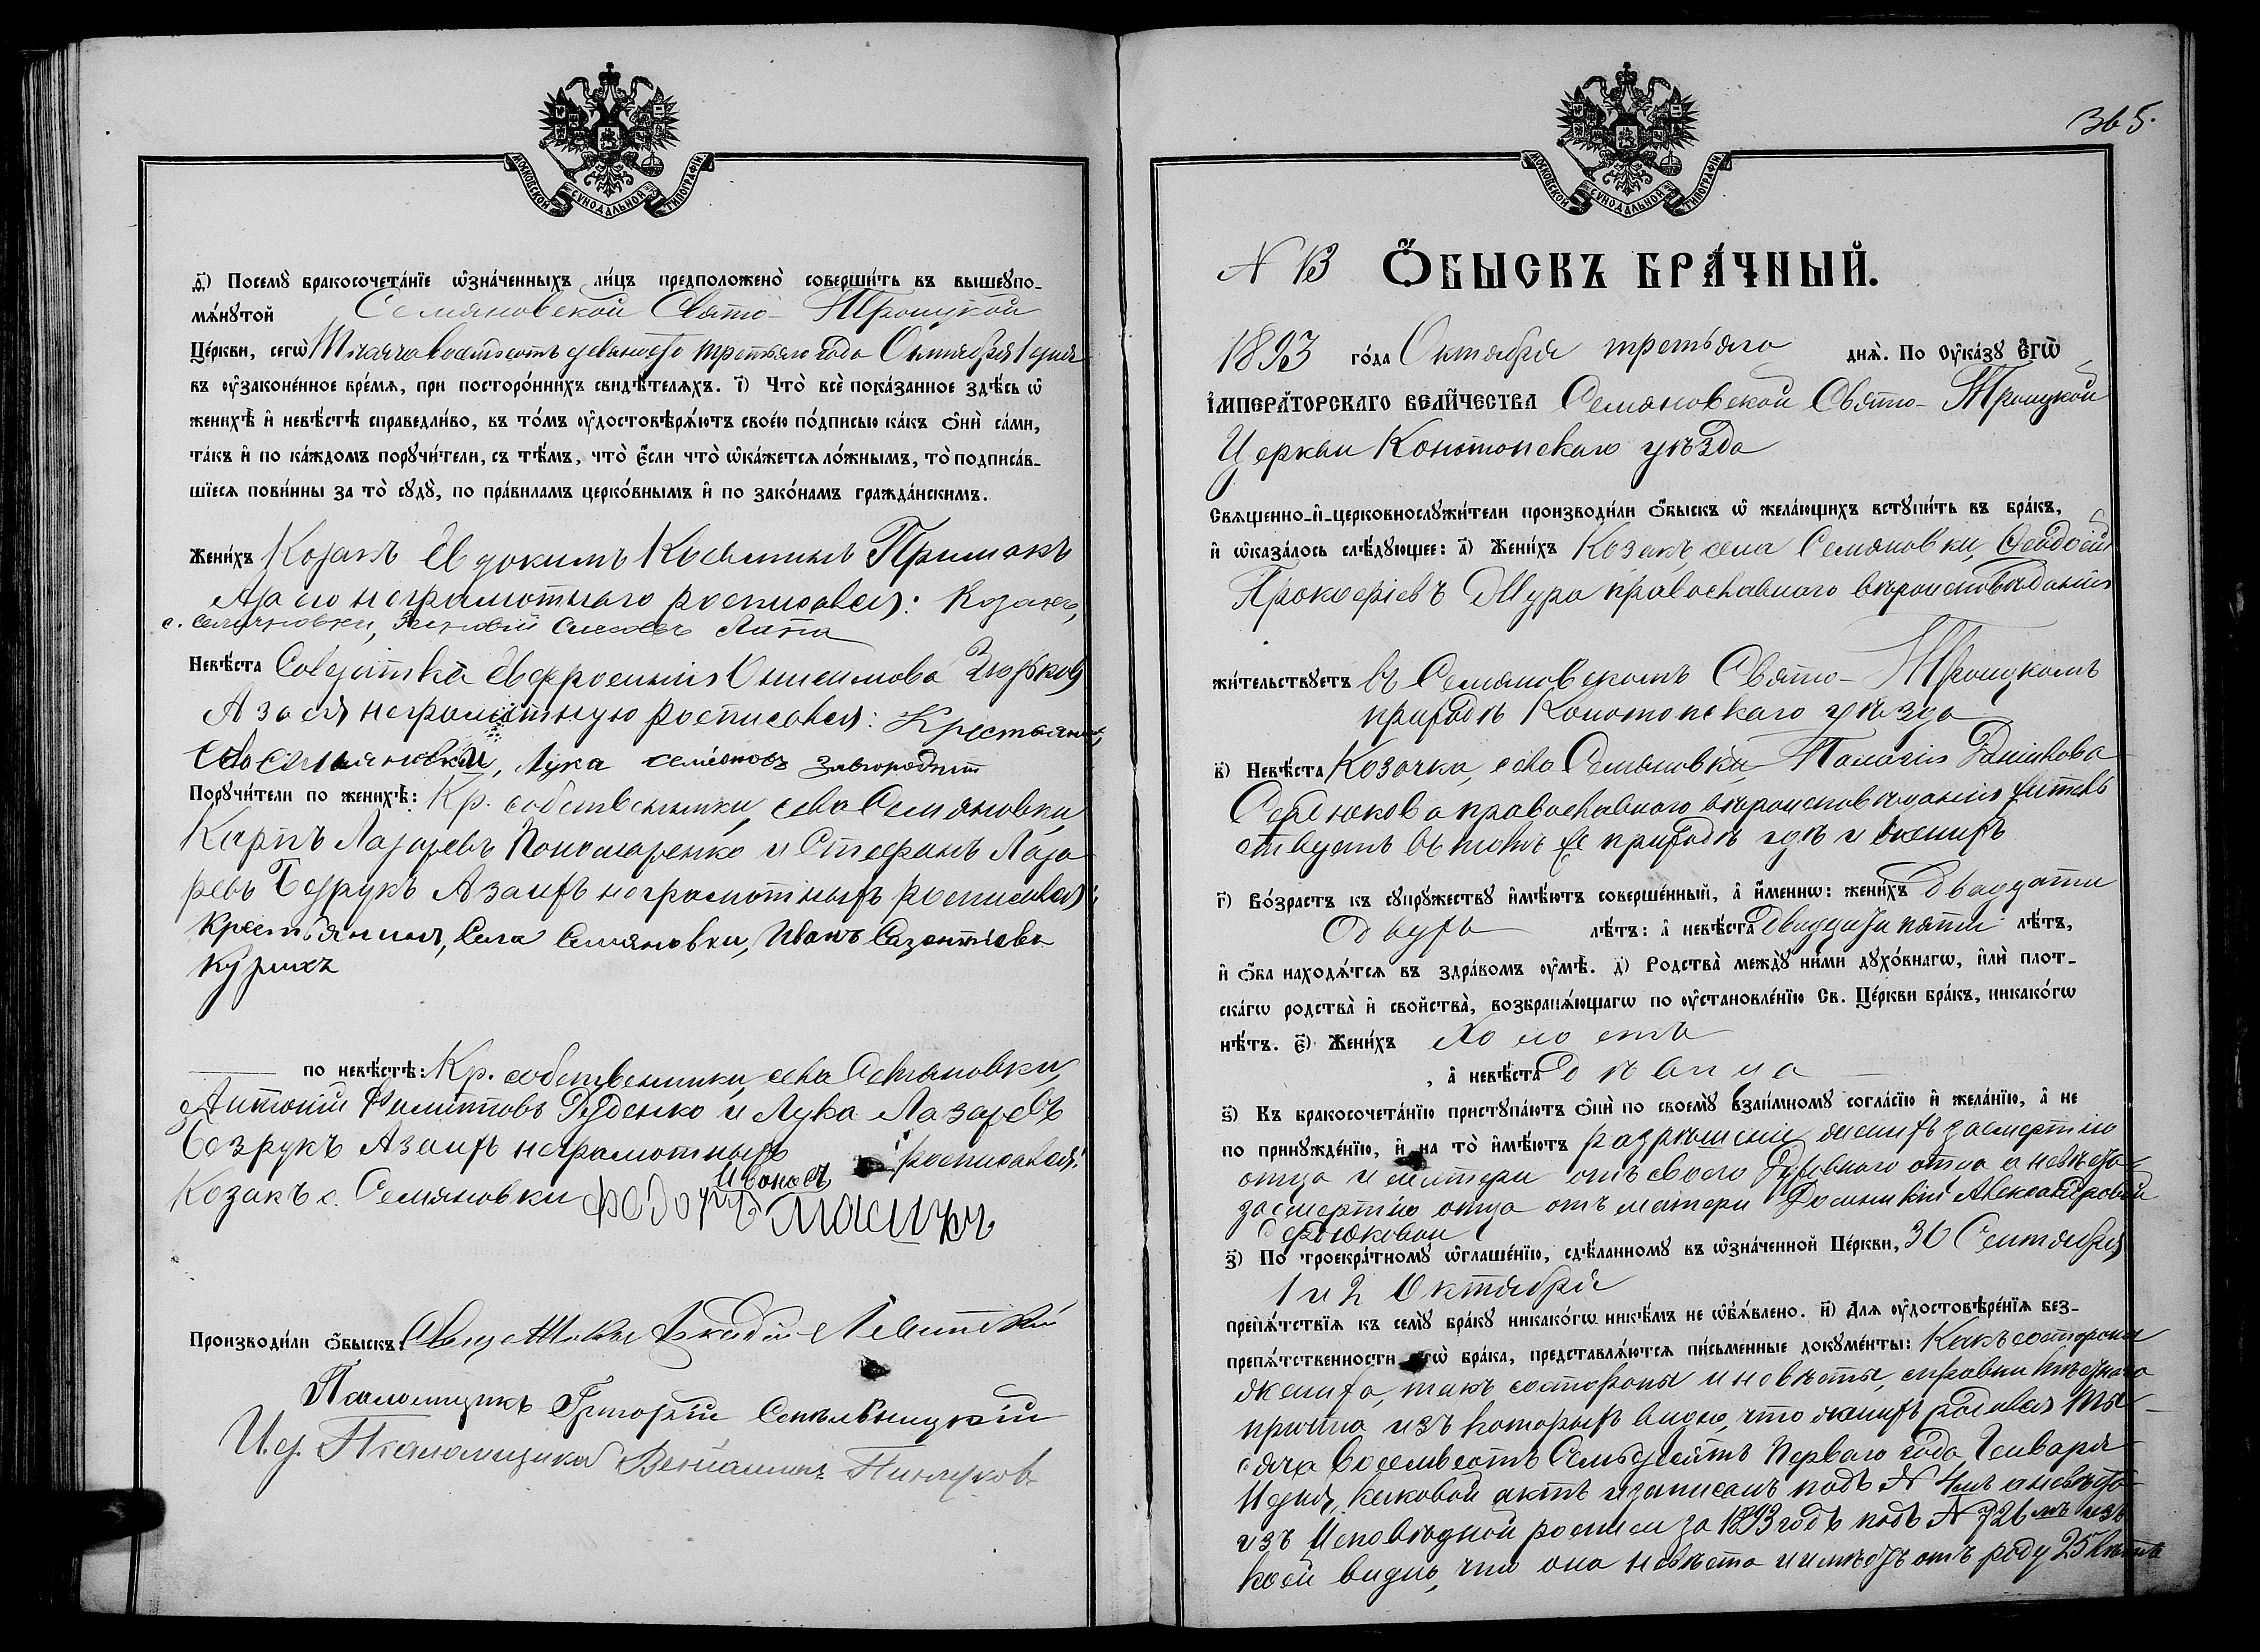 МОСКОВСКОЙ СУНОДАЛЬНОЙ ТИПОГРАФІИ
д҃) Посемꙋ̀ бракосочета́нїе ѡ҆зна́ченныхъ ли́цъ предположено̀ соверши́ть въ вышеꙋпо-
мѧ́нꙋтой Семяновской Свято-Троицкой
Це́ркви, сегѡ̀ Тысяча восемьсотъ девяносто третьяго года Октября 1 дня
въ оу҆законе́нное вре́мѧ, при посторо́ннихъ свидѣ́телѧхъ. і҃) Что̀ всѐ пока́занное здѣ́сь ѡ҆
женихѣ̀ и҆ невѣ́стѣ справедли́во, въ то́мъ оу҆достовѣрѧ́ютъ свое́ю по́дписью ка́къ ѻ҆нѝ са́ми,
та́къ и҆ по ка́ждомъ порꙋчи́тели, съ тѣ́мъ, что̀ є҆́сли что̀ ѡ҆ка́жетсѧ ло́жнымъ, то̀ подписа́в-
шїесѧ пови́нны за то̀ сꙋдꙋ̀, по пра́виламъ церко́внымъ и҆ по зако́намъ гражда́нскимъ.
Жени́хъ Козакъ Евдокимъ Косьминъ Примакъ
А за его неграмотнаго росписался: Козакъ,
с. Семяновки, Лата
Невѣ́ста Солдатка Евфросинія Онисимова
А за ея неграмотную росписался: Крестьянинъ,
села Семяновки, Лука Семеновъ
Порꙋчи́тели по женихѣ̀: Кр. собственники, села Семяновки,
Карпъ Лазаревъ Пономаренко и Стефанъ Лаза
ревъ Безрукъ А за ихъ неграмотныхъ росписался:
Крестьянинъ, Села Семяновки, Иванъ
по невѣ́стѣ: Кр. собственники, села Семяновки,
Антоній Филиповъ Руденко и Лука Лазаревъ
Безрукъ А за ихъ неграмотныхъ росписался:
Козакъ с. Семяновки Ивановъ
Производи́ли ѻ҆́быскъ: Священникъ Аркадій Левитскій
Псаломщикъ Григорій
И. д. Псаломщика Веніаминъ
365.
МОСКОВСКОЙ СУНОДАЛЬНОЙ ТИПОГРАФІИ
N 13 Ѻ҆́БЫСКЪ БРА́ЧНЫЙ.
1893 го́да Октября третьяго днѧ̀. По Оу҆ка́зꙋ Є҆гѡ̀
І҆МПЕРА́ТОРСКАГО ВЕЛИ́ЧЕСТВА Семяновской Свято-Троицкой
Церкви Конотопскаго уѣзда
Свѧщенно-и҆-церковнослꙋжи́тели производи́ли ѻ҆́быскъ ѡ҆ жела́ющихъ встꙋпи́ть въ бра́къ,
и҆ ѡ҆каза́лось слѣ́дꙋющее: а҃) Жени́хъ Козакъ, села Семяновки, Ѳеодосій
Прокофіевъ православнаго вѣроисповѣданія
жи́тельствꙋетъ въ Семяновскомъ Свято-Троицкомъ
приходѣ Конотопскаго уѣзда
в҃) Невѣ́ста Козачка, села Семяновки Пелагія
Сердюкова православнаго вѣроисповѣданія житель
ствуетъ въ томъ же приходѣ гдѣ и женихъ
г҃) Во́зрастъ къ сꙋпрꙋ́жествꙋ и҆мѣ́ютъ соверше́нный, а҆ и҆́меннѡ: жени́хъ двадцати
двухъ лѣ́тъ: а҆ невѣ́ста двадцати пяти лѣ́тъ,
и҆ ѻ҆́ба находѧ́тсѧ въ здра́вомъ оу҆мѣ̀. д҃) Родства̀ междꙋ̀ ни́ми дꙋхо́внагѡ, и҆лѝ плот-
ска́гѡ родства̀ и҆ свойства̀, возбранѧ́ющагѡ по оу҆становле́нїю Св. Це́ркви бра́къ, никако́гѡ
нѣ́тъ. є҃) Жени́хъ Холостъ
, а҆ невѣ́ста Дѣвица
ѕ҃) Къ бракосочета́нїю пристꙋпа́ютъ ѻ҆нѝ по своемꙋ̀ взаи́мномꙋ согла́сїю и҆ жела́нїю, а҆ не
по принꙋжде́нїю, и҆ на то̀ и҆мѣ́ютъ разрѣшеніе, женихъ за смертію
отца и матери отъ своего духовнаго отца а невѣста
за смертію отца отъ матери Александровой
Сердюковой
з҃) По троекра́тномꙋ ѡ҆глаше́нїю, сдѣ́ланномꙋ въ ѡ҆зна́ченной Це́ркви, 30 Сентября
1 и 2 Октября
препѧ́тствїѧ къ семꙋ̀ бра́кꙋ никако́гѡ никѣ́мъ не ѡ҆б̾ѧ́влено. и҃) Длѧ оу҆достовѣре́нїѧ без-
препѧ́тственности сегѡ̀ бра́ка, представлѧ́ютсѧ пи́сьменные докꙋме́нты: Какъ со стороны
жениха, такъ со стороны и невѣсты, справки мѣстнаго
причта изъ которыхъ видно, что женихъ родился Ты
сяча Восемьсотъ Семьдесятъ Перваго года, Генваря
11 дня, каковой актъ и записанъ подъ N 4мъ а невѣста
изъ Исповѣдной росписи за 1893 годъ подъ N 726мъ изъ
коей видно, что она невѣста имѣетъ отъ роду 25 лѣтъ